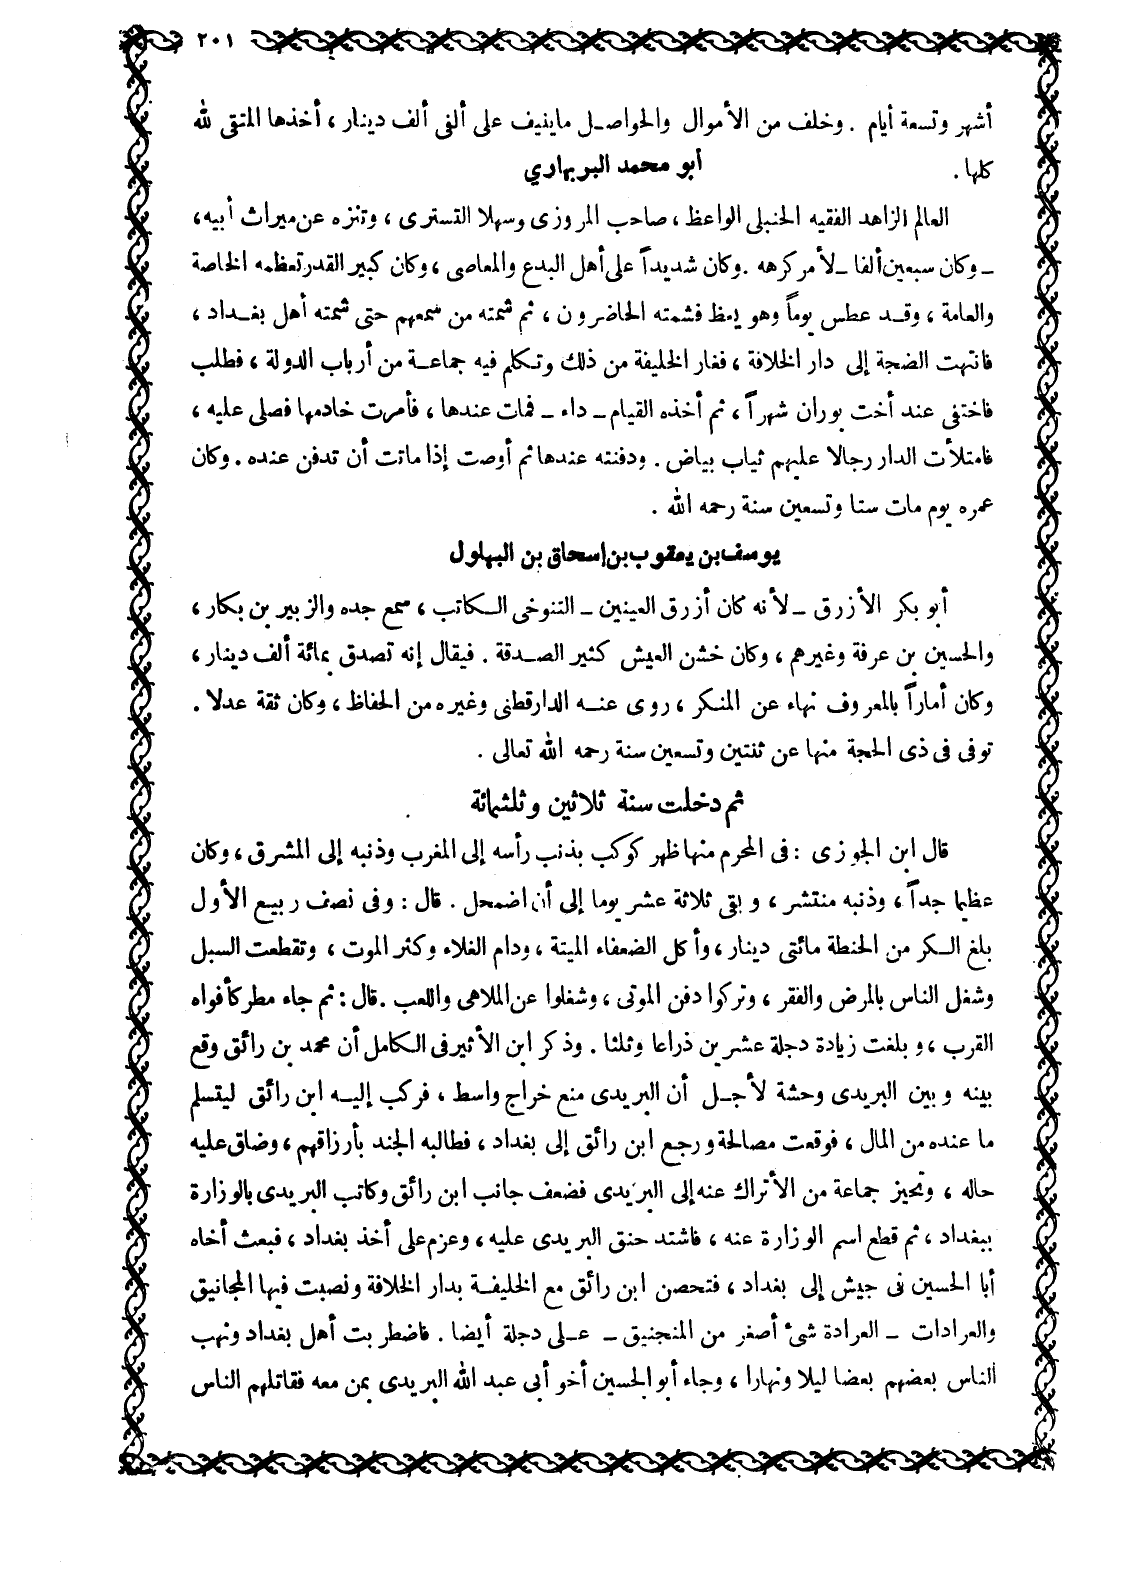 ٢٠١
أشهر وتسعة أيام . وخلف من الأموال والحواصل ماينيف على ألفى ألف دينار ، أخذها المتقى لله
كلها .
أبو محمد البربهاري
العالم الزاهد الفقيه الحنبلى الواعظ ، صاحب المروزى وسهلا التسترى ، وتنزه عن ميراث أبيه ،
ـ وكان سبعين ألفا ـ لأمر كرهه . وكان شديداً على أهل البدع والمعاصى ، وكان كبير القدر تعظمه الخاصة
والعامة ، وقد عطس يوماً وهو يعظ فشمته الحاضرون ، ثم شمته من سمعهم حتى شمته أهل بغداد ،
فانتهت الضجة إلى دار الخلافة ، فغار الخليفة من ذلك وتكلم فيه جماعة من أرباب الدولة ، فطلب
فاختفى عند أخت بوران شهراً ، ثم أخذه القيام ـ داء ـ فمات عندها ، فأمرت خادمها فصلى عليه ،
فامتلأت الدار رجالا عليهم ثياب بياض . ودفنته عندها ثم أوصت إذا ماتت أن تدفن عنده . وكان
عمره يوم مات ستا وتسعين سنة رحمه الله .
يوسف بن يعقوب بن إسحاق بن البهلول
أبو بكر الأزرق ـ لأنه كان أزرق العينين ـ التنوخى الكاتب ، سمع جده والزبير بن بكار ،
والحسين بن عرفة وغيرهم ، وكان خشن العيش كثير الصدقة . فيقال إنه تصدق بمائة ألف دينار ،
وكان أماراً بالمعروف نهاء عن المنكر ، روى عنه الدارقطنى وغيره من الحفاظ ، وكان ثقة عدلا .
توفى فى ذى الحجة منها عن ثنتين وتسعين سنة رحمه الله تعالى .
ثم دخلت سنة ثلاثين وثلثمائة
قال ابن الجوزى : فى المحرم منها ظهر كوكب بذنب رأسه إلى المغرب وذنبه إلى المشرق ، وكان
عظيما جداً ، وذنبه منتشر ، وبقى ثلاثة عشر يوما إلى أن اضمحل . قال : وفى نصف ربيع الأول
بلغ الكر من الحنطة مائتى دينار ، وأكل الضعفاء الميتة ، ودام الغلاء وكثر الموت ، وتقطعت السبل
وشغل الناس بالمرض والفقر ، وتركوا دفن الموتى ، وشغلوا عن الملاهى واللعب . قال : ثم جاء مطر كأفواه
القرب ، وبلغت زيادة دجلة عشرين ذراعا وثلثا . وذكر ابن الأثير فى الكامل أن محمد بن رائق وقع
بينه وبين البريدى وحشة لأجل أن البريدى منع خراج واسط ، فركب إليه ابن رائق ليتسلم
ما عنده من المال ، فوقعت مصالحة ورجع ابن رائق إلى بغداد ، فطالبه الجند بأرزاقهم ، وضاق عليه
حاله ، وتحيز جماعة من الأتراك عنه إلى البريدى فضعف جانب ابن رائق وكاتب البريدى بالوزارة
ببغداد ، ثم قطع اسم الوزارة عنه ، فاشتد حنق البريدى عليه ، وعزم على أخذ بغداد ، فبعث أخاه
أبا الحسين فى جيش إلى بغداد ، فتحصن ابن رائق مع الخليفة بدار الخلافة ونصبت فيها المجانيق
والعرادات ـ العرادة شئ أصغر من المنجنيق ـ على دجلة أيضا . فاضطربت أهل بغداد ونهب
الناس بعضهم بعضا ليلا ونهارا ، وجاء أبو الحسين أخو أبى عبد الله البريدى بمن معه فقاتلهم الناس